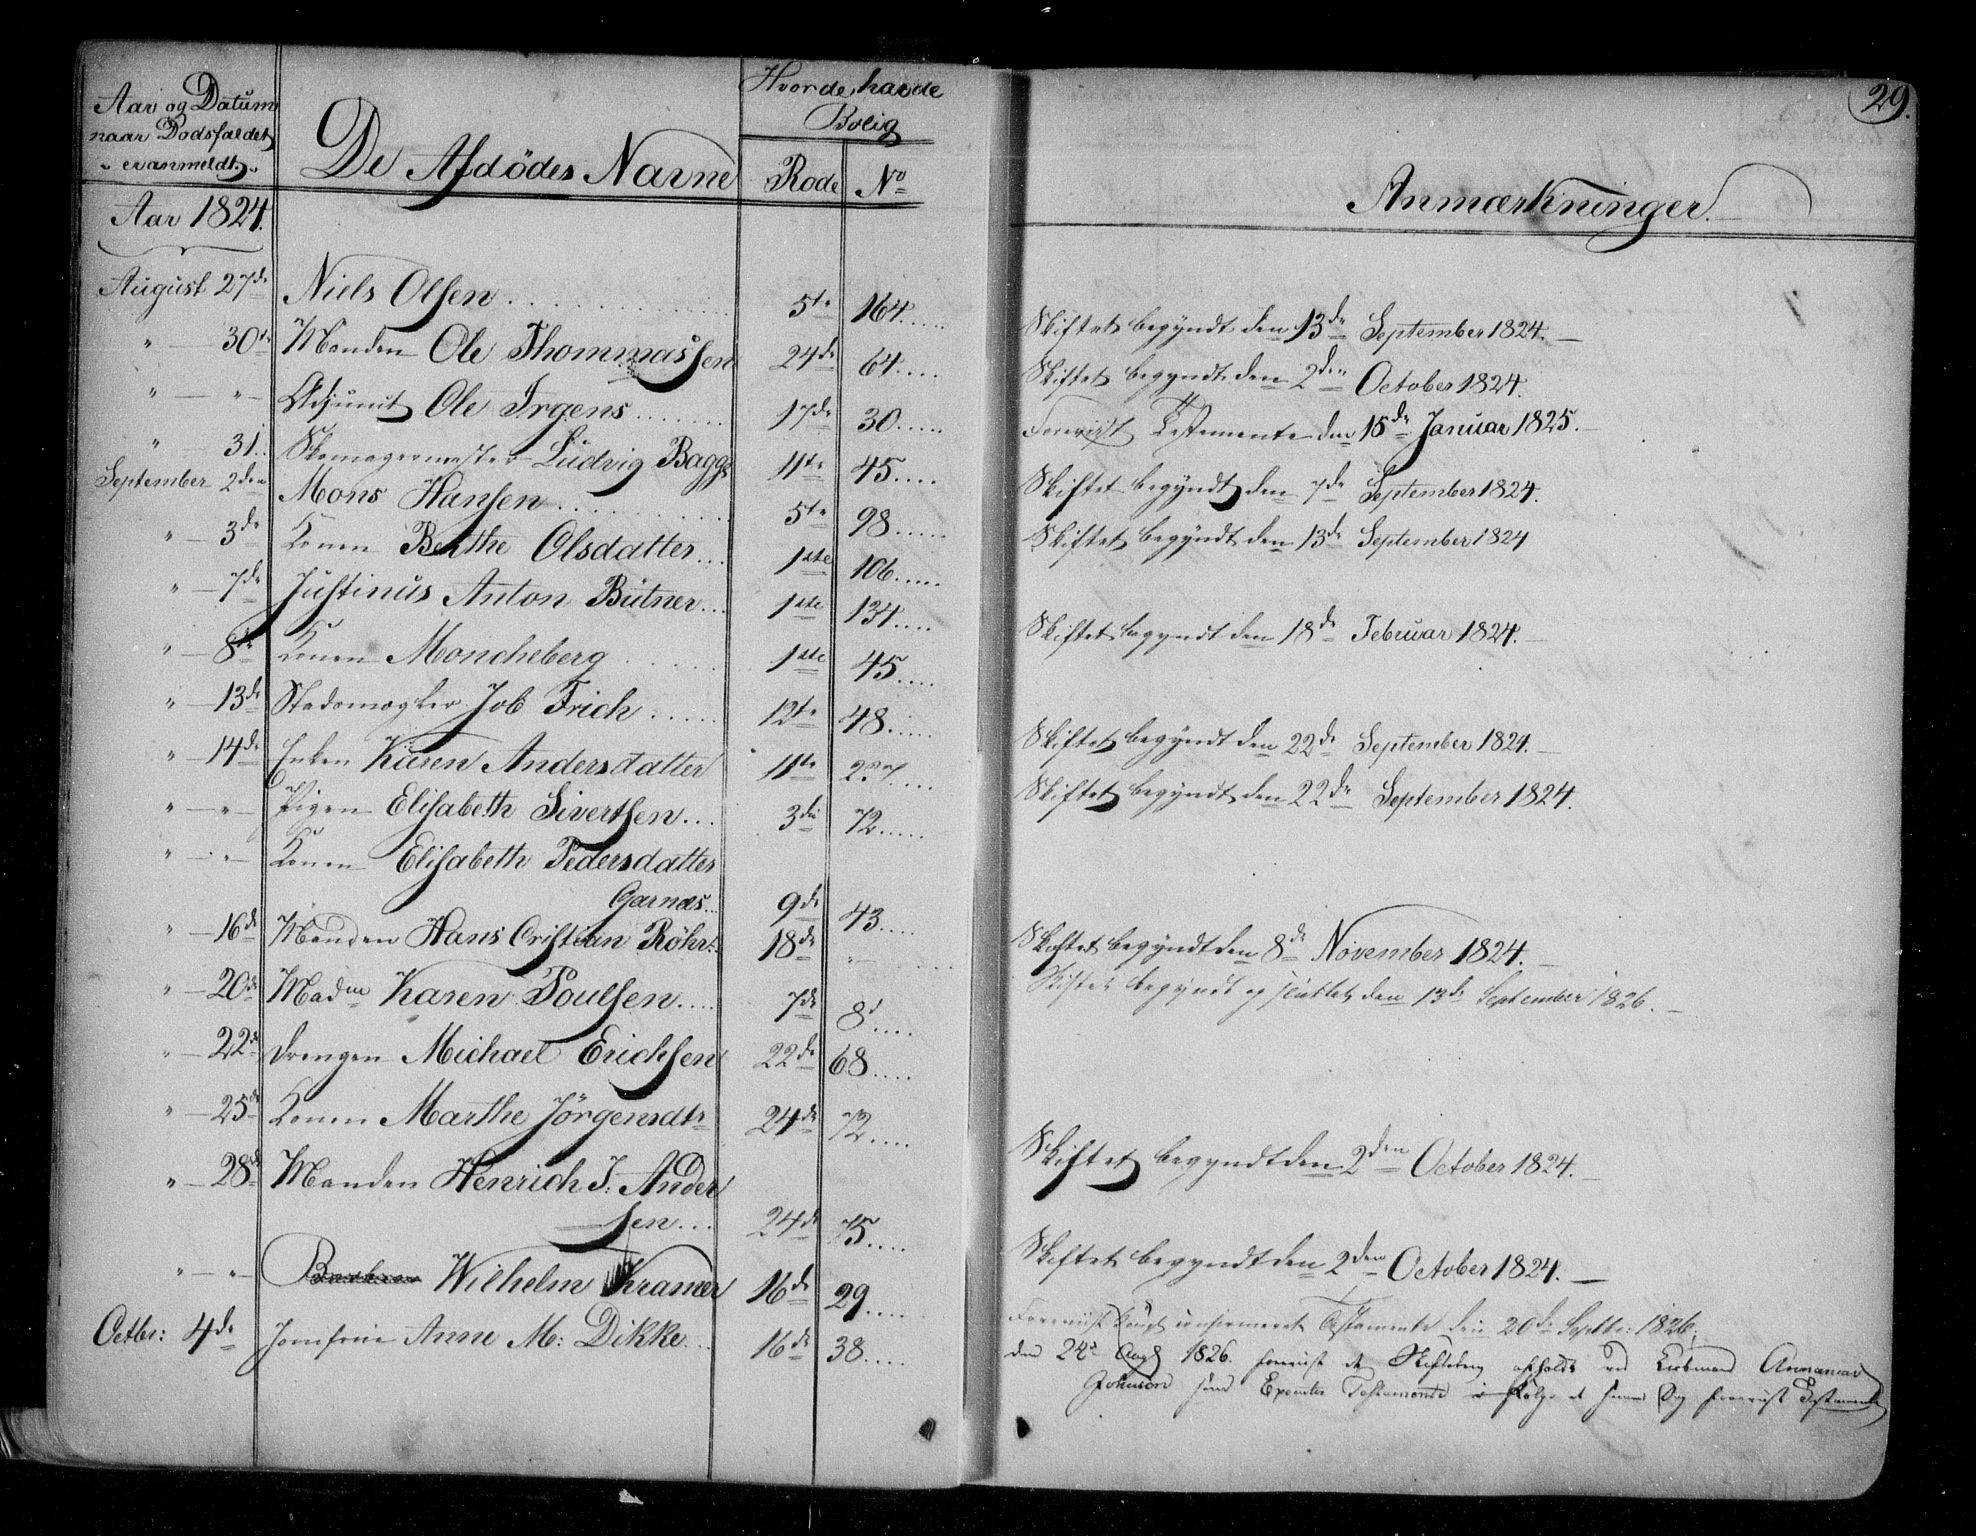 29.
Aar og Datum
naar Dødsfaldet
er anmeldt.
De Afdödes Navne
Hvor de havde
Bolig
Rode No
Anmærkninger.
Aar 1824.
August 27de Niels Olsen 5te 164 Skiftet begyndt den 13de September 1824.
" 30te Manden Ole Thommassen 24de 64 Skiftet begyndt den 2den October 1824.
" " Adjunct Ole Irgens 17de 30 Foreviist Testamente den 15de Januar 1825.
" 31. Skomagermester Ludvig Bagge 11te 45 Skiftet begyndt den 7de September 1824.
September 2den Mons Hansen 5te 98 Skiftet begyndt den 13de September 1824
" 3de Konen Berthe Olsdatter 1ste 106
" 7de Justinus Anton Bütner 1ste 134 Skiftet begyndt den 18de Februar 1824.
" 8de Konen Moncheberg 1ste 45
" 13de Stadsmægler Job Frich 12te 48 Skiftet begyndt den 22de September 1824.
" 14de Enken Karen Andersdatter 11te 237 Skiftet begyndt den 22de September 1824.
" " Pigen Elisabeth Sivertsen 3die 72
" " Konen Elisabeth Pedersdatter
Garnæs 9de 43 Skiftet begyndt den 8de November 1824.
" 16de Manden Hans Cristian Röhr 18de " Skiftet begyndt og sluttet den 13de September 1826.
" 20de Madme Karen Poulsen 7de 8
" 22de Drengen Michael Ericksen 22de 68
" 25de Konen Marthe Jörgensdtr 24de 72 Skiftet begyndt den 2den October 1824.
" 28de Manden Henrich J. Ander
sen 24de 75 Skiftet begyndt den 2den October 1824.
" " Wilhelm Kramer 16de 29 Foreviist confirmeret Testamente den 20de Septbr: 1826.
Octbr: 4de Jomfrue Anne M: Dikke 16de 38 den 24de Aug 1826. foreviist
Testamente